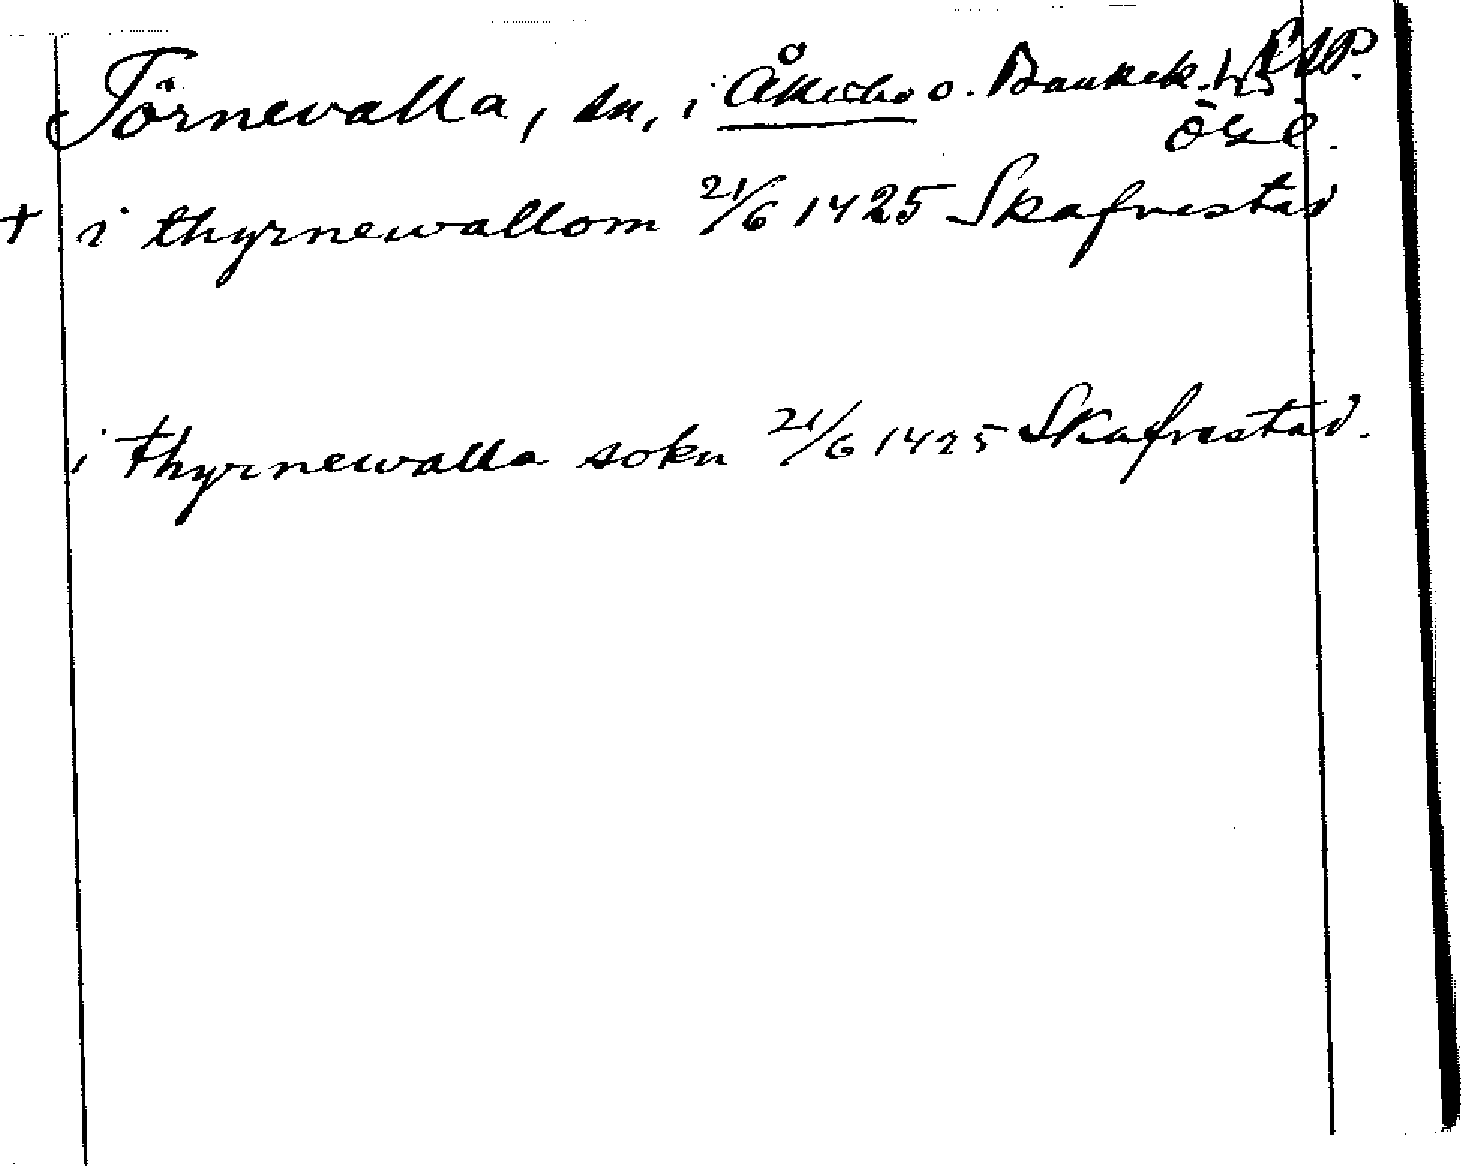 Törnevalla, sn, i Åkerbo o. Bankek. hd RAP.
ÖgL.
+ i thyrnewallom 21/6 1425 Skafvestad
i thyrnewalla sokn 21/6 1425 Skafvestad.